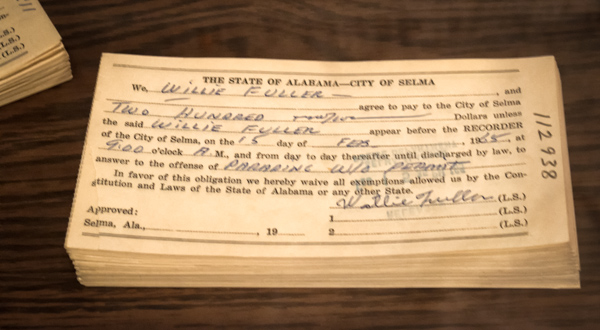 THE STATE OF ALABAMA—CITY OF SELMA
We, WILLIE FULLER , and
TWO HUNDRED no/100 agree to pay to the City of Selma
Dollars unless
the said WILLIE FULLER appear before the RECORDER
of the City of Selma, on the 15 day of FEB. , 1965, at
9:00 o'clock A M., and from day to day thereafter until discharged by law, to
answer to the offense of PARADING W/O PERMIT
In favor of this obligation we hereby waive all exemptions allowed us by the Con-
stitution and Laws of the State of Alabama or any other State.
Willie Fuller (L.S.)
Approved: 1 (L.S.)
Selma, Ala., , 19 2 (L.S.)
112938
(L.S.)
(L.S.)